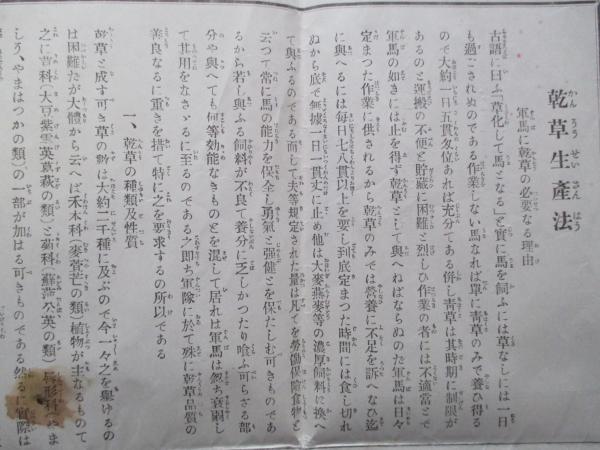 乾草生産法
軍馬に乾草の必要なる理由
古語に曰ふ「草化して馬となる」と實に馬を飼ふには草なしには一日
も過ごされぬのである作業しない馬なれば單に青草のみで養ひ得る
ので大約一日五貫匁位あれば充分である併し青草は其時期に制限が
あるのと運搬の不便と貯藏に困難と烈しひ作業の者には不適當とで
軍馬の如きには止を得ず乾草として與へねばならぬのだ軍馬は日々
定まつた作業に供されるから乾草のみでは營養に不足を訴へなひ迄
に與へるには毎日七八貫以上を要し到底定まつた時間には食し切れ
ぬから底で無據一日一貫丈に止め他は大麥燕麥等の濃厚飼料に換へ
て與ふるのである而して夫等規定された量は凡てを勞働保險食物と
云つて常に馬の能力を保全し勇氣と强健とを保たしむ可きものであ
るから若し與ふる飼料が不良て養分に乏しかつたり喰ふ可らざる部
分や與へても何等効能なきものとを混して居れは軍馬は忽ち衰弱し
て其用をなさゞるに至るのである之即ち軍隊に於て殊に乾草品質の
善良なるに重きを措て特に之を要求するの所以である
一、乾草の種類及性質
乾草と成す可き草の數は大約二千種に及ぶので今一々之を擧けるの
は困難たが大體から云へば禾本科(麥萱芒の類)植物が主なるものて
之に荳科(大豆紫雲英萩の類)と菊科(蘇蒲公英の類)形科(やま
しろ、やまはつかの類)の一部が加はる可きものである然るに實際は